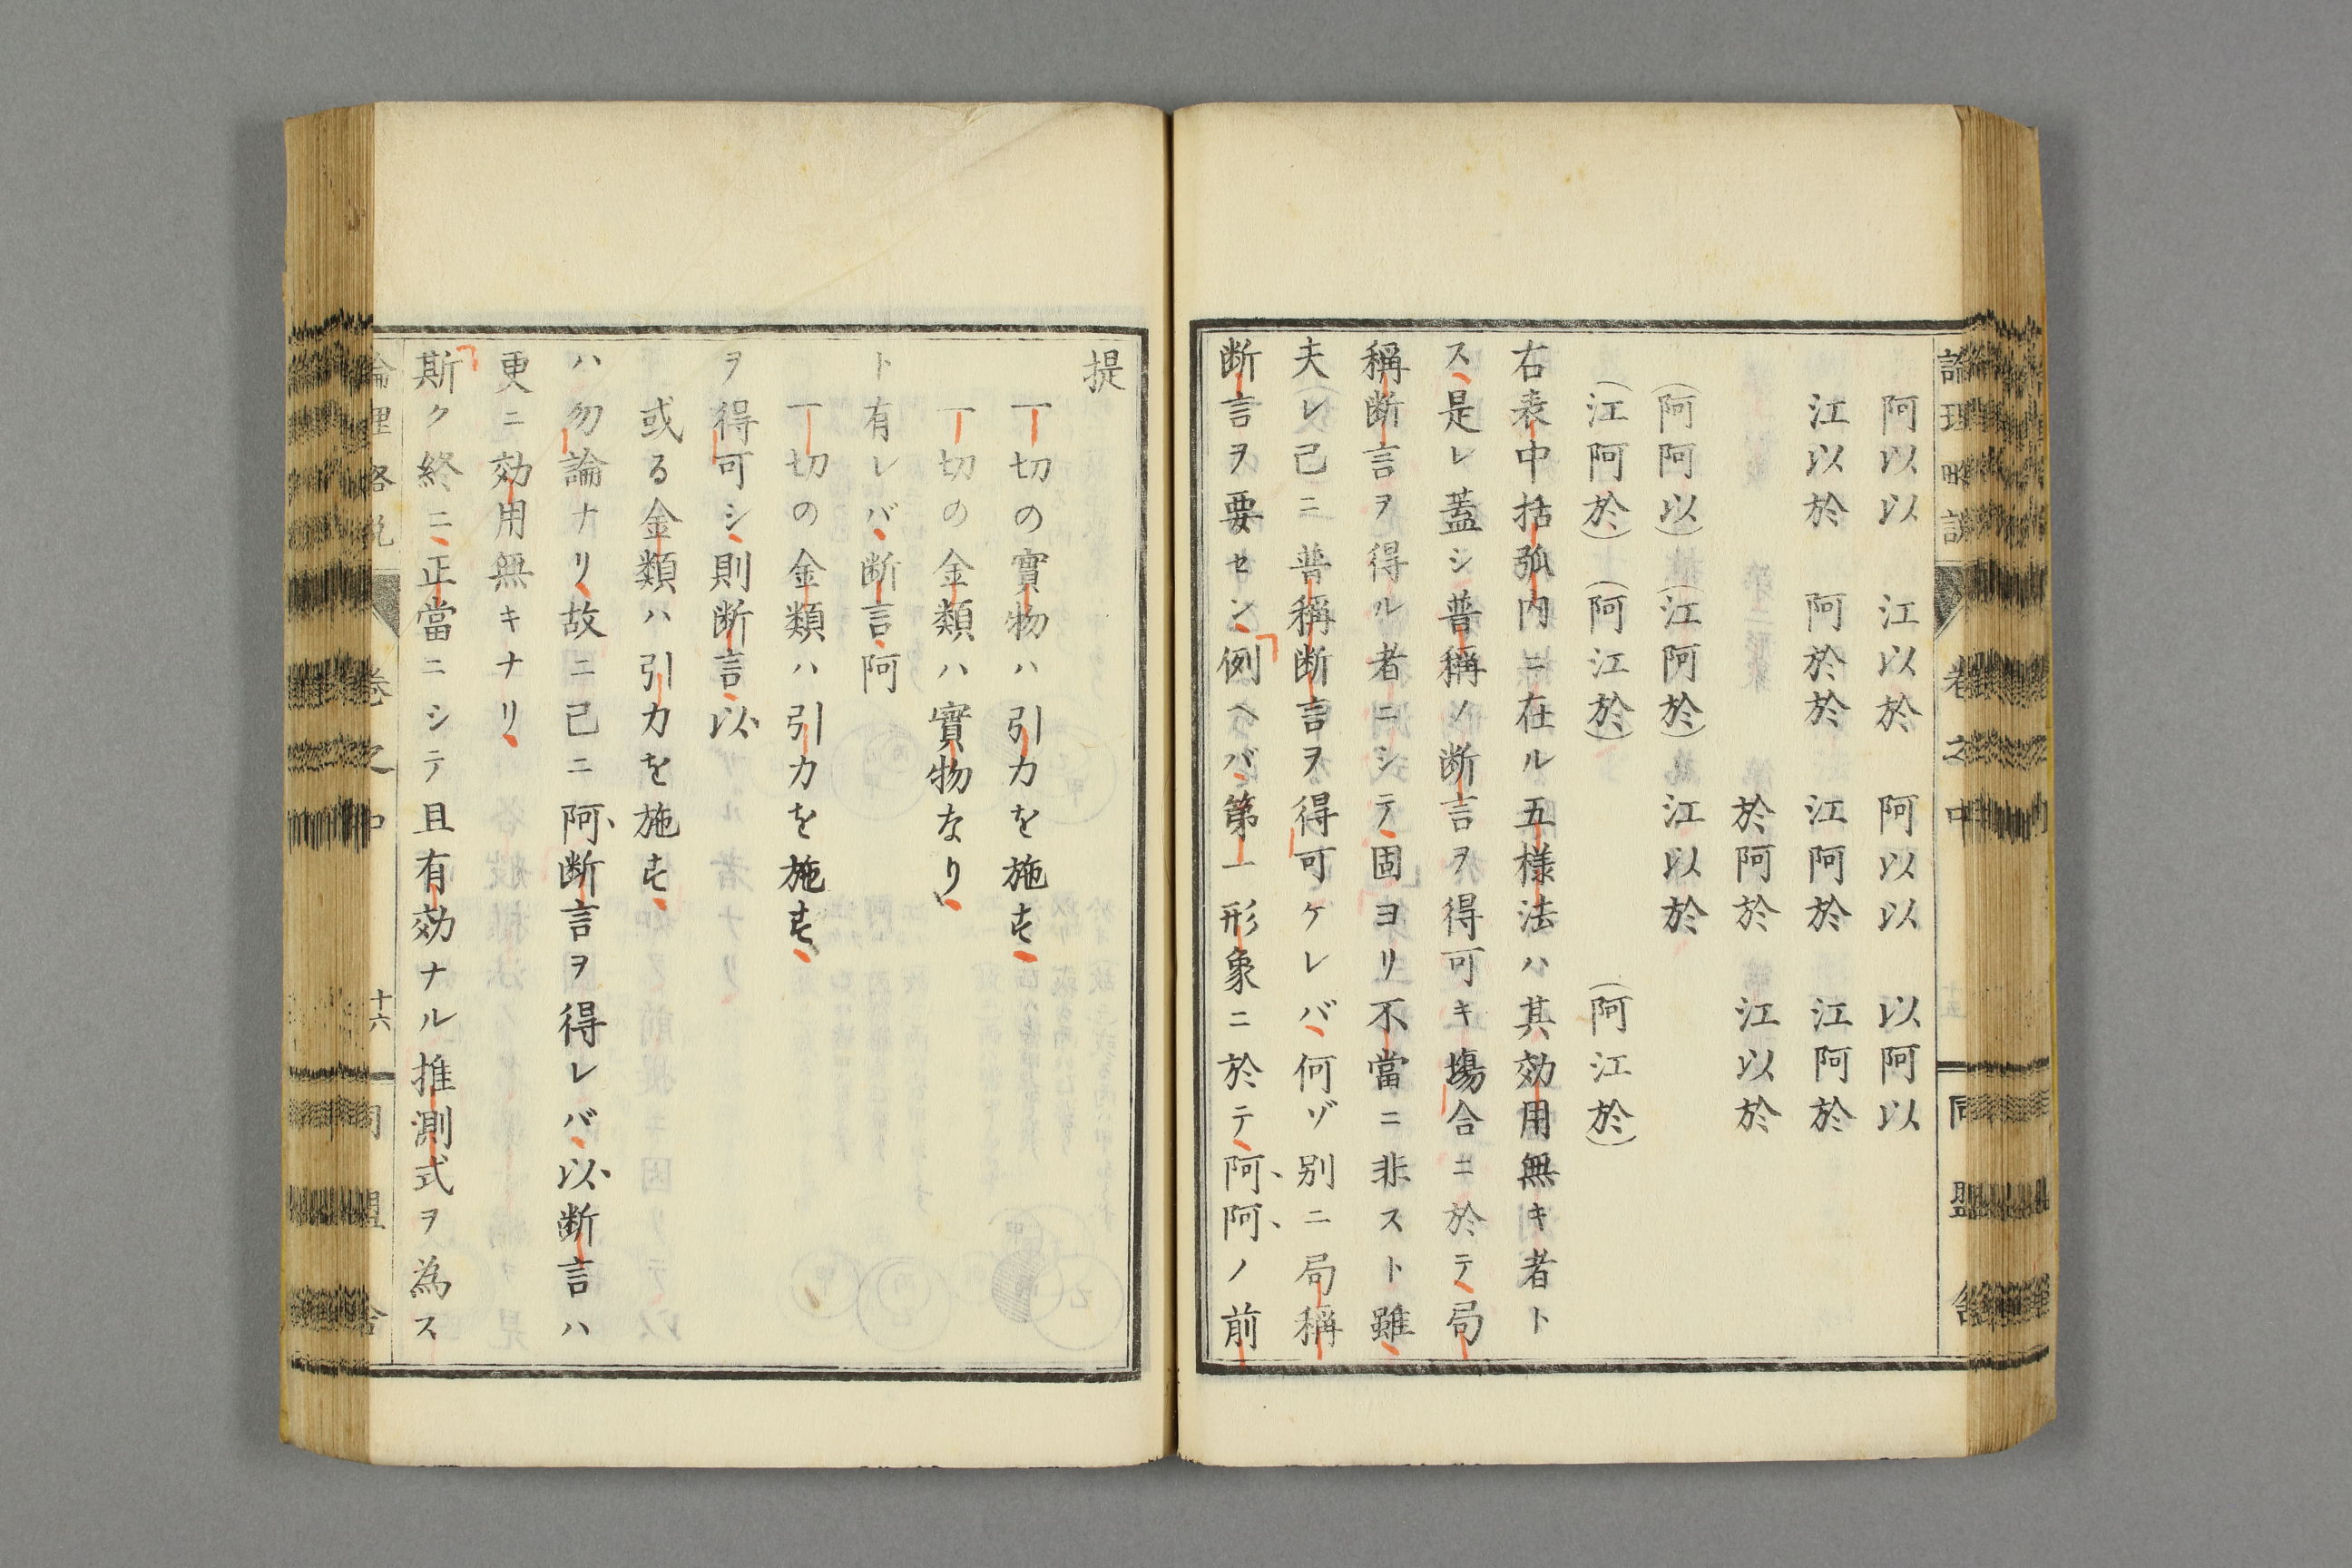 論理略説 卷之中 同盟舎
阿以以 江以於 阿以以 以阿以
江以於 阿於於 江阿於 江阿於
於阿於 江以於
(阿阿以) (江阿於) 江以於
(江阿於) (阿江於) (阿江於)
右表中括弧内ニ在ル五様法ハ其効用無キ者ト
ス是レ蓋シ普稱ノ断言ヲ得可キ塲合ニ於テ局
稱断言ヲ得ル者ニシテ固ヨリ不當ニ非スト雖
夫レ己ニ普稱断言ヲ得可ケレバ何ゾ別ニ局稱
断言ヲ要セン例ヘバ第一形象ニ於テ阿、阿、ノ前
提
一切の實物ハ引力を施す
一切の金類ハ實物なり
ト有レバ断言阿
一切の金類ハ引力を施す
ヲ得可シ則断言以
或る金類ハ引力を施す
ハ勿論ナリ故ニ己ニ阿、断言ヲ得レバ以、断言ハ
更ニ効用無キナリ
斯ク終ニ正當ニシテ且有効ナル推測式ヲ為ス
論理略説 卷之中 十六 同盟舎